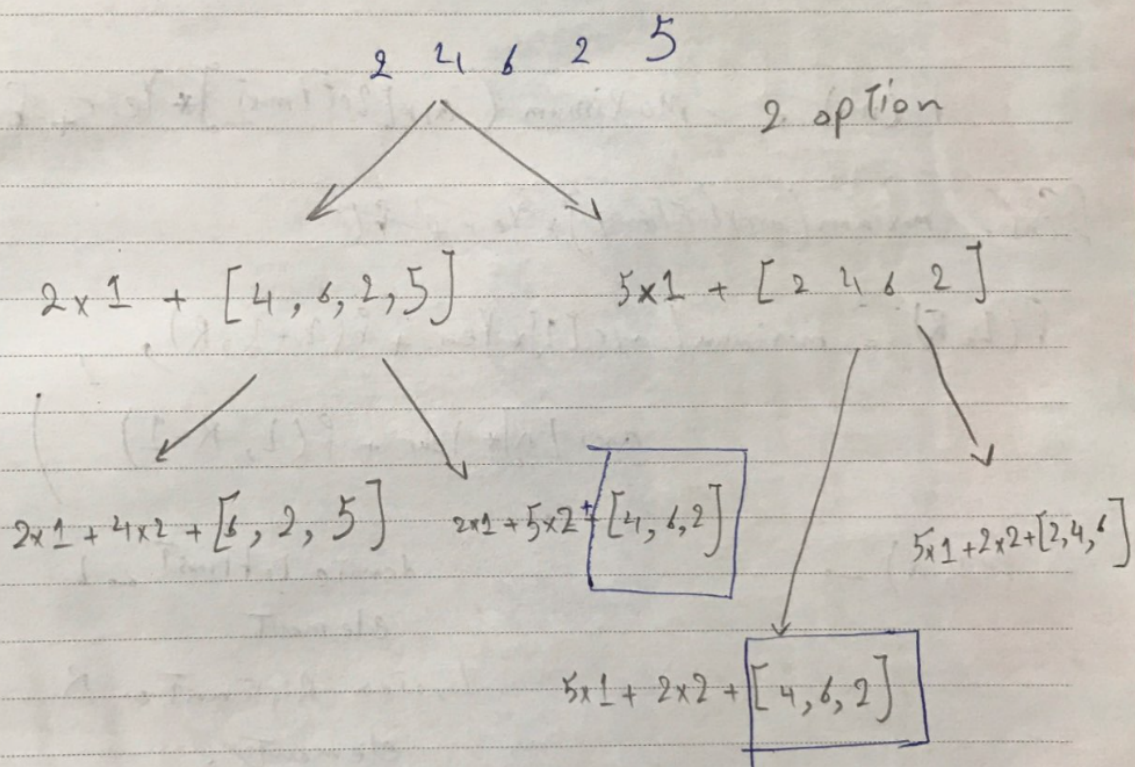 2 4 6 2 5
2 option
2x1 + [4, 6, 2, 5]
5x1 + [2 4 6 2]
2x1 + 4x2 + [6, 2, 5]
2x1 + 5x2 + [4, 6, 2]
5x1 + 2x2 + [2, 4, 6]
5x1 + 2x2 + [4, 6, 2]